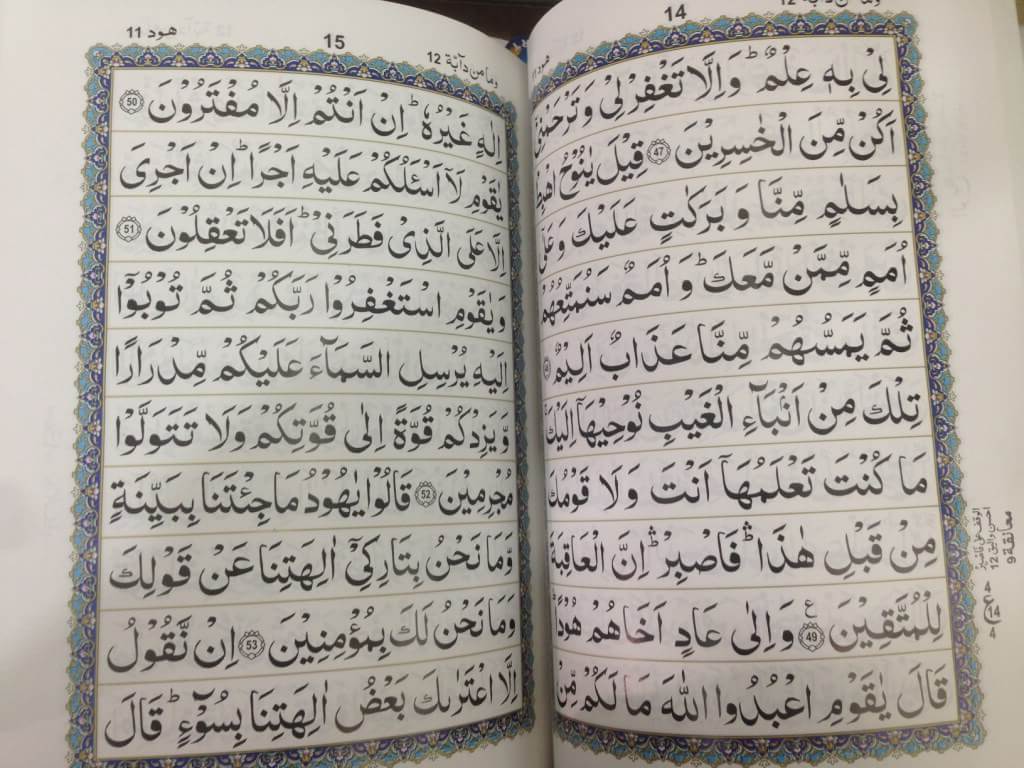 14
وما من دآبة 12
لِیْ بِهٖ عِلْمٌ ؕ وَ اِلَّا تَغْفِرْ لِیْ وَ تَرْحَمْنِیْۤ
اَكُنْ مِّنَ الْخٰسِرِیْنَ ۝47 قِیْلَ یٰنُوْحُ اهْبِطْ
بِسَلٰمٍ مِّنَّا وَ بَرَكٰتٍ عَلَیْكَ وَ عَلٰۤی
اُمَمٍ مِّمَّنْ مَّعَكَ ؕ وَ اُمَمٌ سَنُمَتِّعُهُمْ
ثُمَّ یَمَسُّهُمْ مِّنَّا عَذَابٌ اَلِیْمٌ
تِلْكَ مِنْ اَنْۢبَآءِ الْغَیْبِ نُوْحِیْهَاۤ اِلَیْكَ
مَا كُنْتَ تَعْلَمُهَاۤ اَنْتَ وَ لَا قَوْمُكَ
مِنْ قَبْلِ هٰذَا ؕ فَاصْبِرْ ؕ اِنَّ الْعَاقِبَةَ
لِلْمُتَّقِیْنَ ۝49 ع وَ اِلٰی عَادٍ اَخَاهُمْ هُوْدًا ؕ
قَالَ یٰقَوْمِ اعْبُدُوا اللّٰهَ مَا لَكُمْ مِّنْ
معانقة 9
4
ع 14
4
هود 11
15
وما من دآبة 12
اِلٰهٍ غَیْرُهٗ ؕ اِنْ اَنْتُمْ اِلَّا مُفْتَرُوْنَ ۝50
یٰقَوْمِ لَاۤ اَسْـَٔلُكُمْ عَلَیْهِ اَجْرًا ؕ اِنْ اَجْرِیَ
اِلَّا عَلَی الَّذِیْ فَطَرَنِیْ ؕ اَفَلَا تَعْقِلُوْنَ ۝51
وَ یٰقَوْمِ اسْتَغْفِرُوْا رَبَّكُمْ ثُمَّ تُوْبُوْۤا
اِلَیْهِ یُرْسِلِ السَّمَآءَ عَلَیْكُمْ مِّدْرَارًا
وَّ یَزِدْكُمْ قُوَّةً اِلٰی قُوَّتِكُمْ وَلَا تَتَوَلَّوْا
مُجْرِمِیْنَ ۝52 قَالُوْا یٰهُوْدُ مَا جِئْتَنَا بِبَیِّنَةٍ
وَّ مَا نَحْنُ بِتَارِكِیْۤ اٰلِهَتِنَا عَنْ قَوْلِكَ
وَ مَا نَحْنُ لَكَ بِمُؤْمِنِیْنَ ۝53 اِنْ نَّقُوْلُ
اِلَّا اعْتَرٰىكَ بَعْضُ اٰلِهَتِنَا بِسُوْٓءٍ ؕ قَالَ